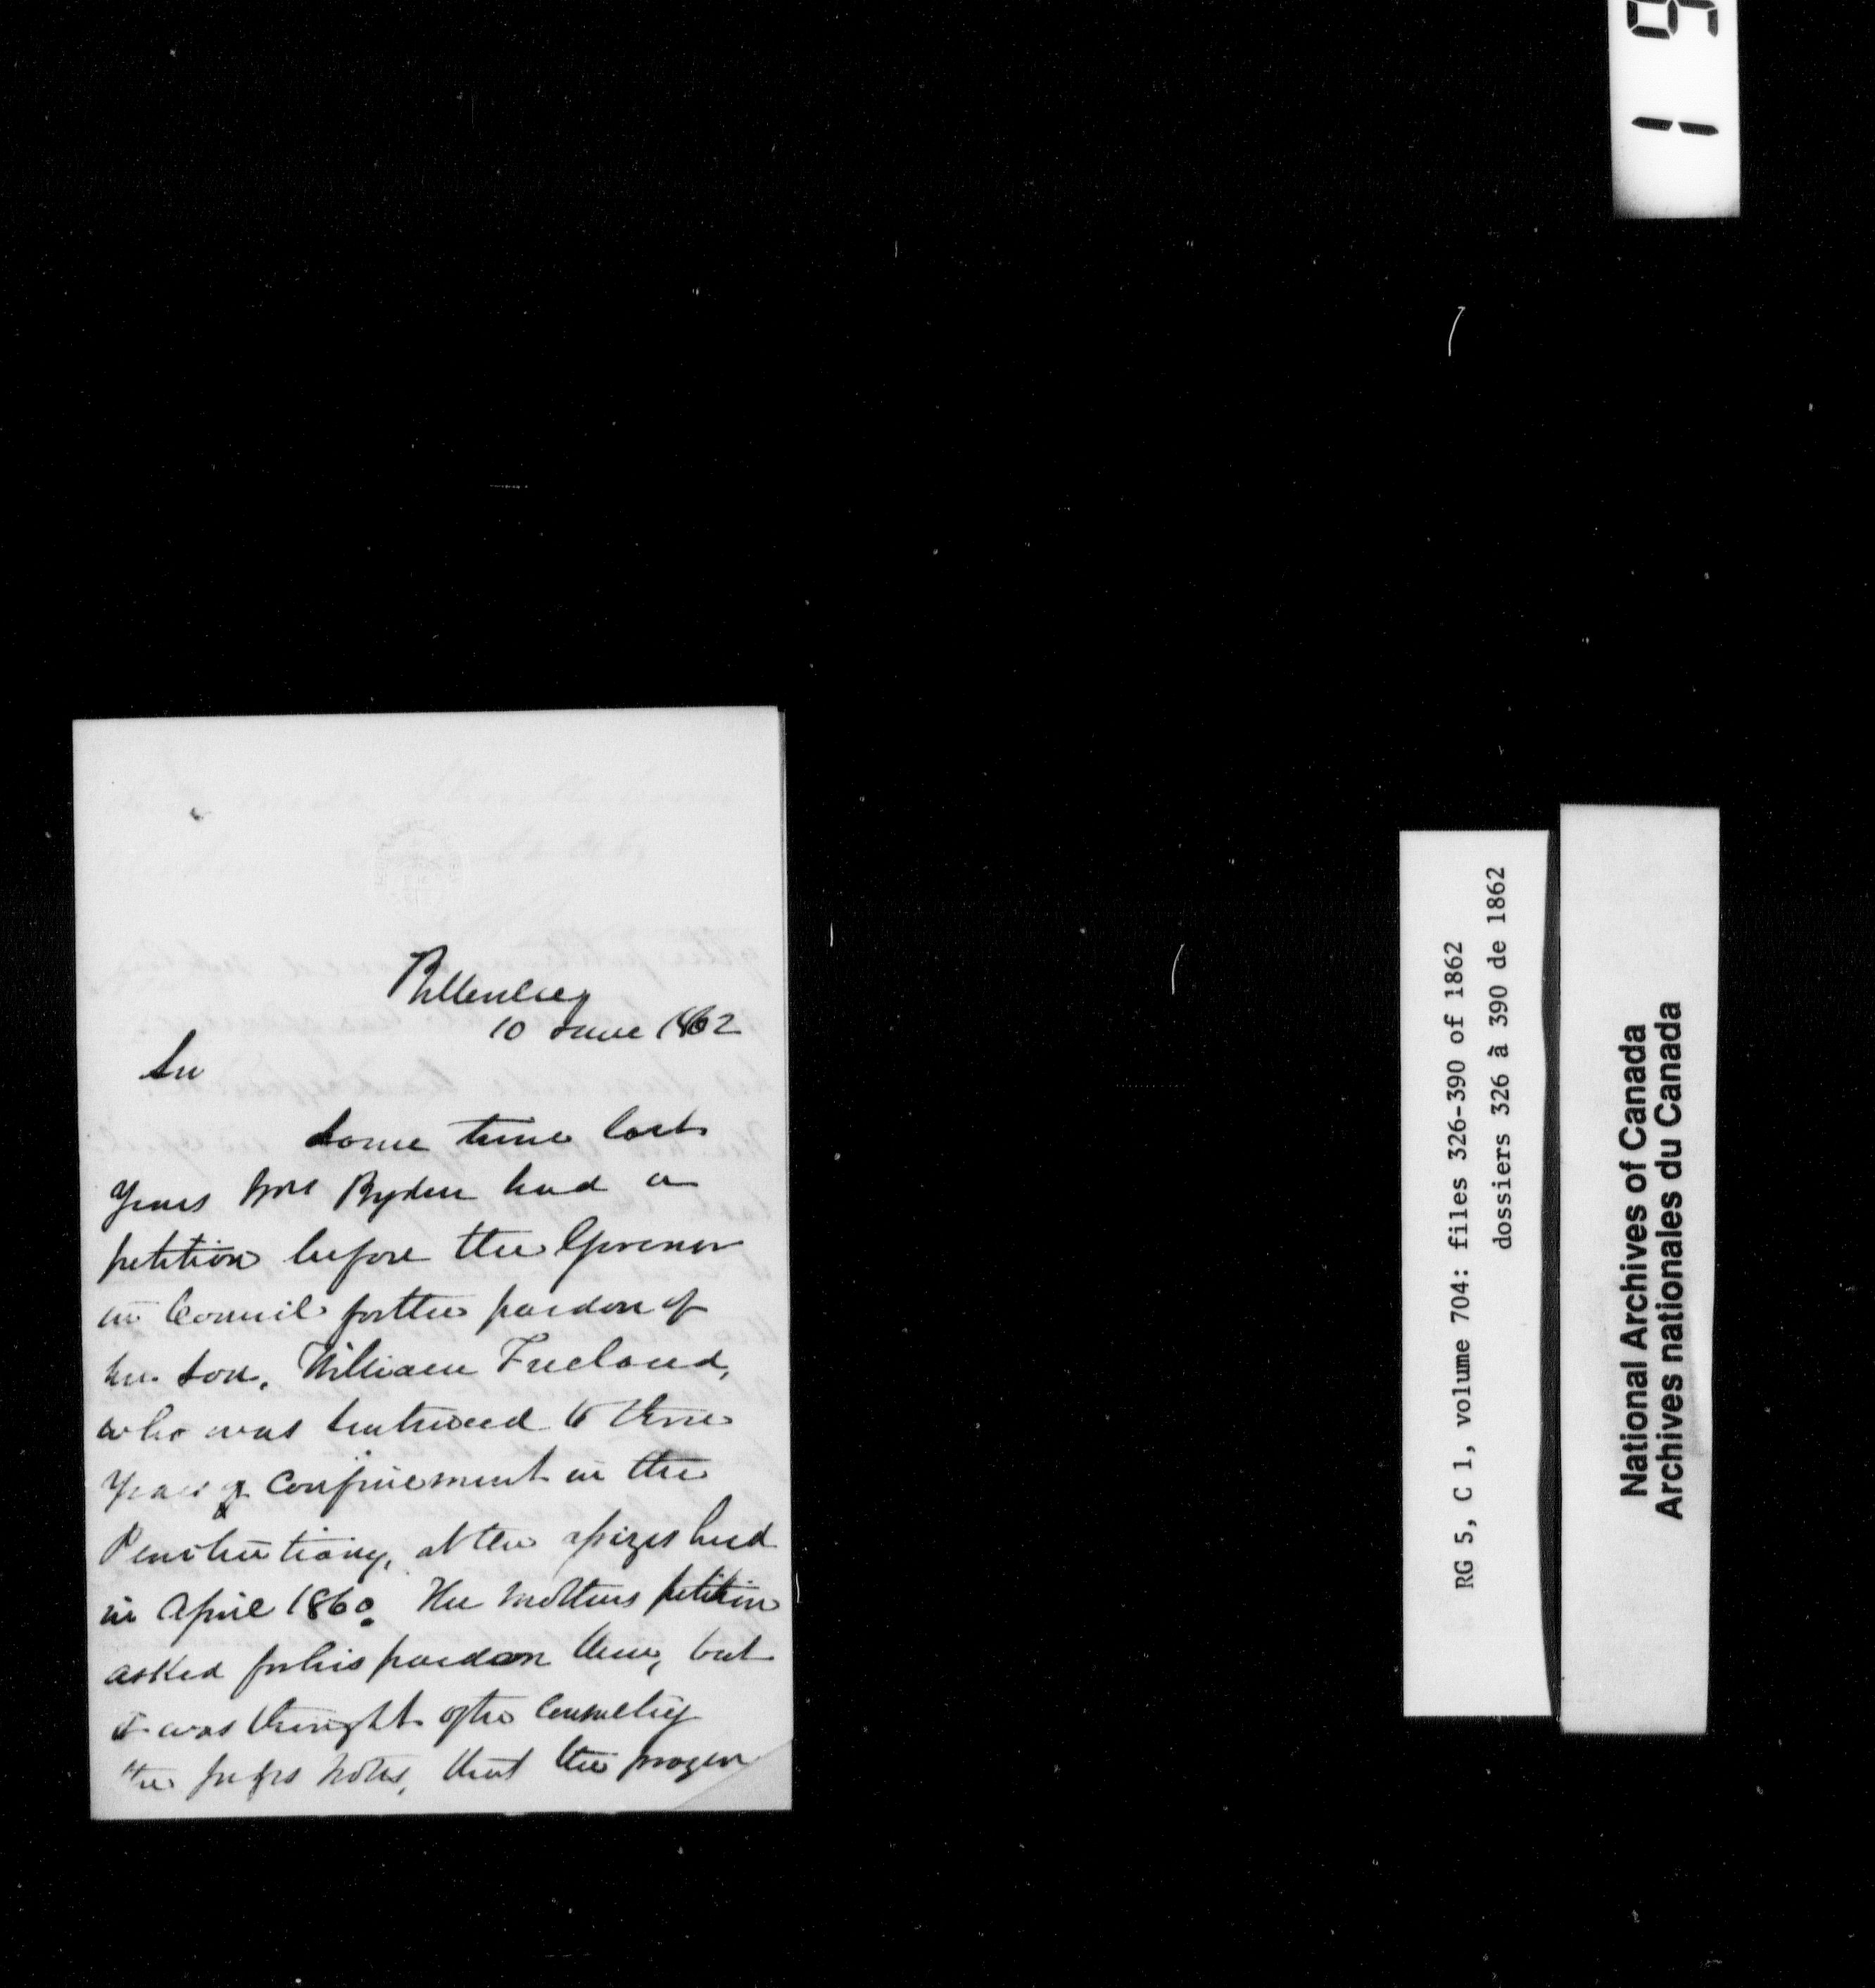 10 June 1862
Sir
Some time last
Year Mrs Ryden had a
petition before the Govenor
in Council for the pardon of
her son, William Freeland,
who was sentenced to three
Years of confinement in the
Penitentiary, at the assizes held
in April 1860. The mothers petition
asked for his pardon then, but
it was thought after consulting
the Judges notes, that the prayer
RG 5, C 1, volume 704: files 326-390 of 1862
dossiers 326 à 390 de 1862
National Archives of Canada
Archives nationales du Canada